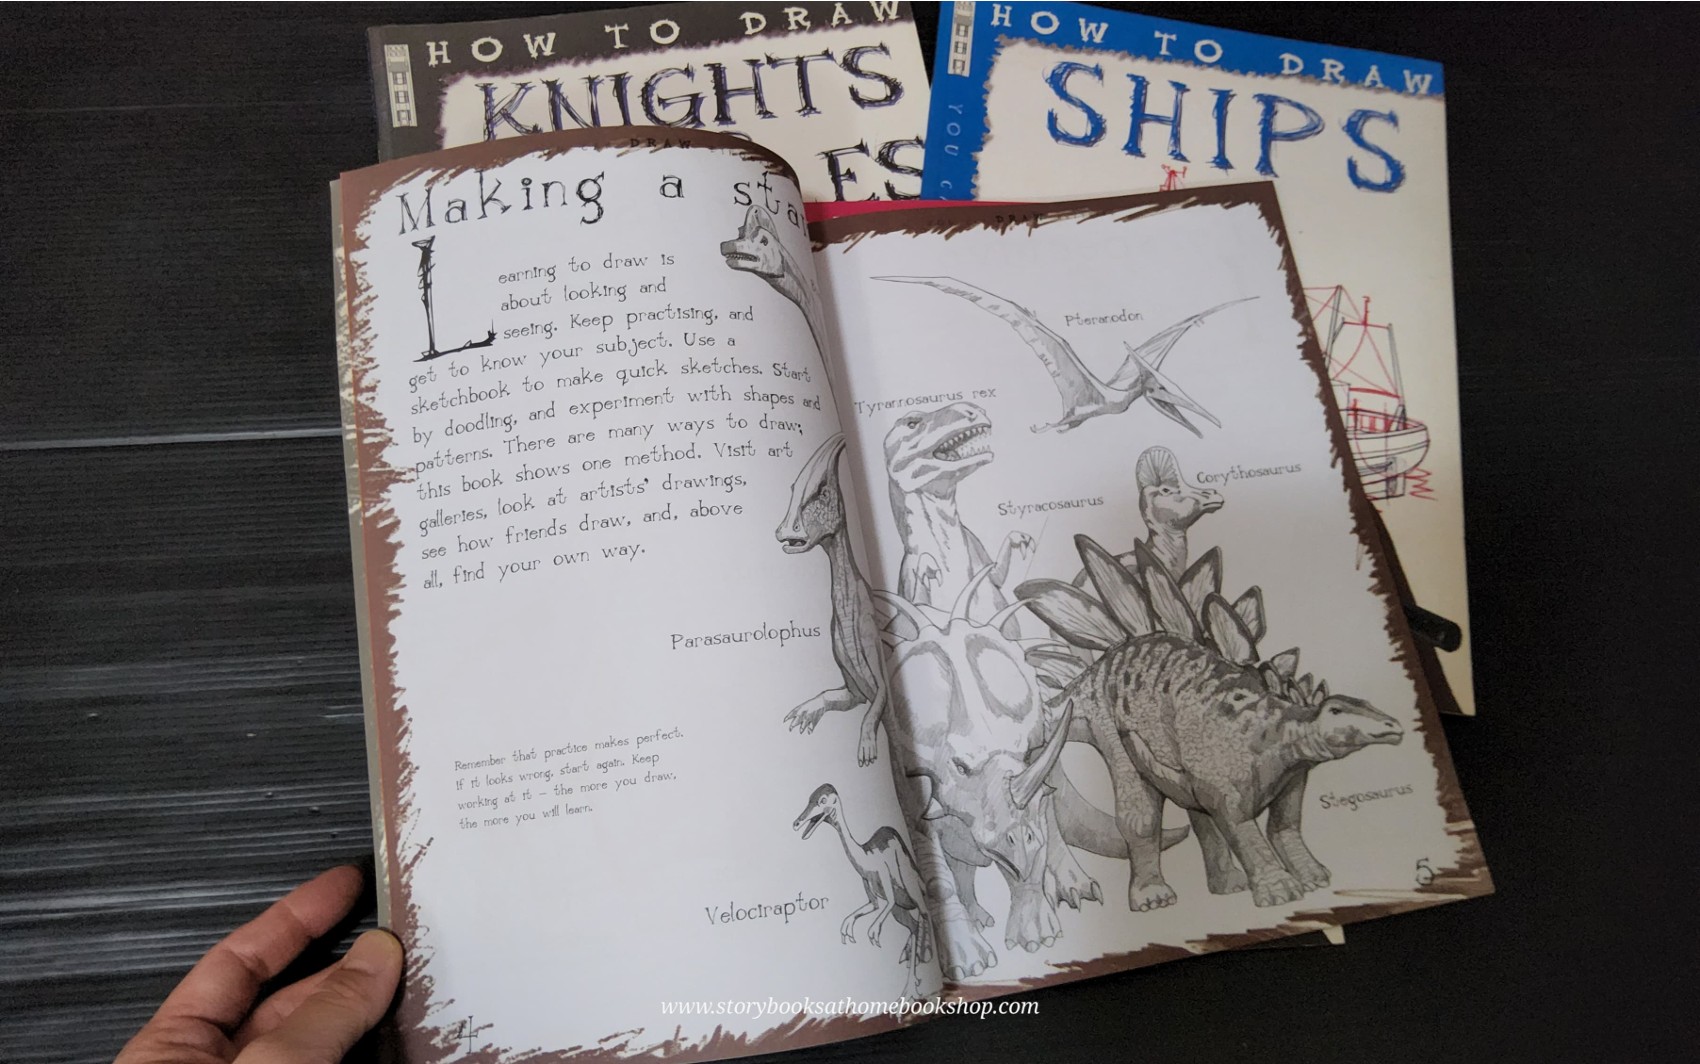 HOW TO DRAW
KNIGHTS
HOW TO DRAW
SHIPS
YOU
DRAW
Making a sta
Learning to draw is
about looking and
seeing. Keep practising, and
get to know your subject. Use a
sketchbook to make quick sketches. Start
by doodling, and experiment with shapes and
patterns. There are many ways to draw;
this book shows one method. Visit art
galleries, look at artists' drawings,
see how friends draw, and, above
all, find your own way.
Parasaurolophus
Remember that practice makes perfect.
If it looks wrong, start again. Keep
working at it – the more you draw,
the more you will learn.
Velociraptor
4
DRAW
Pteranodon
Tyrannosaurus rex
Corythosaurus
Styracosaurus
Stegosaurus
5
www.storybooksathomebookshop.com